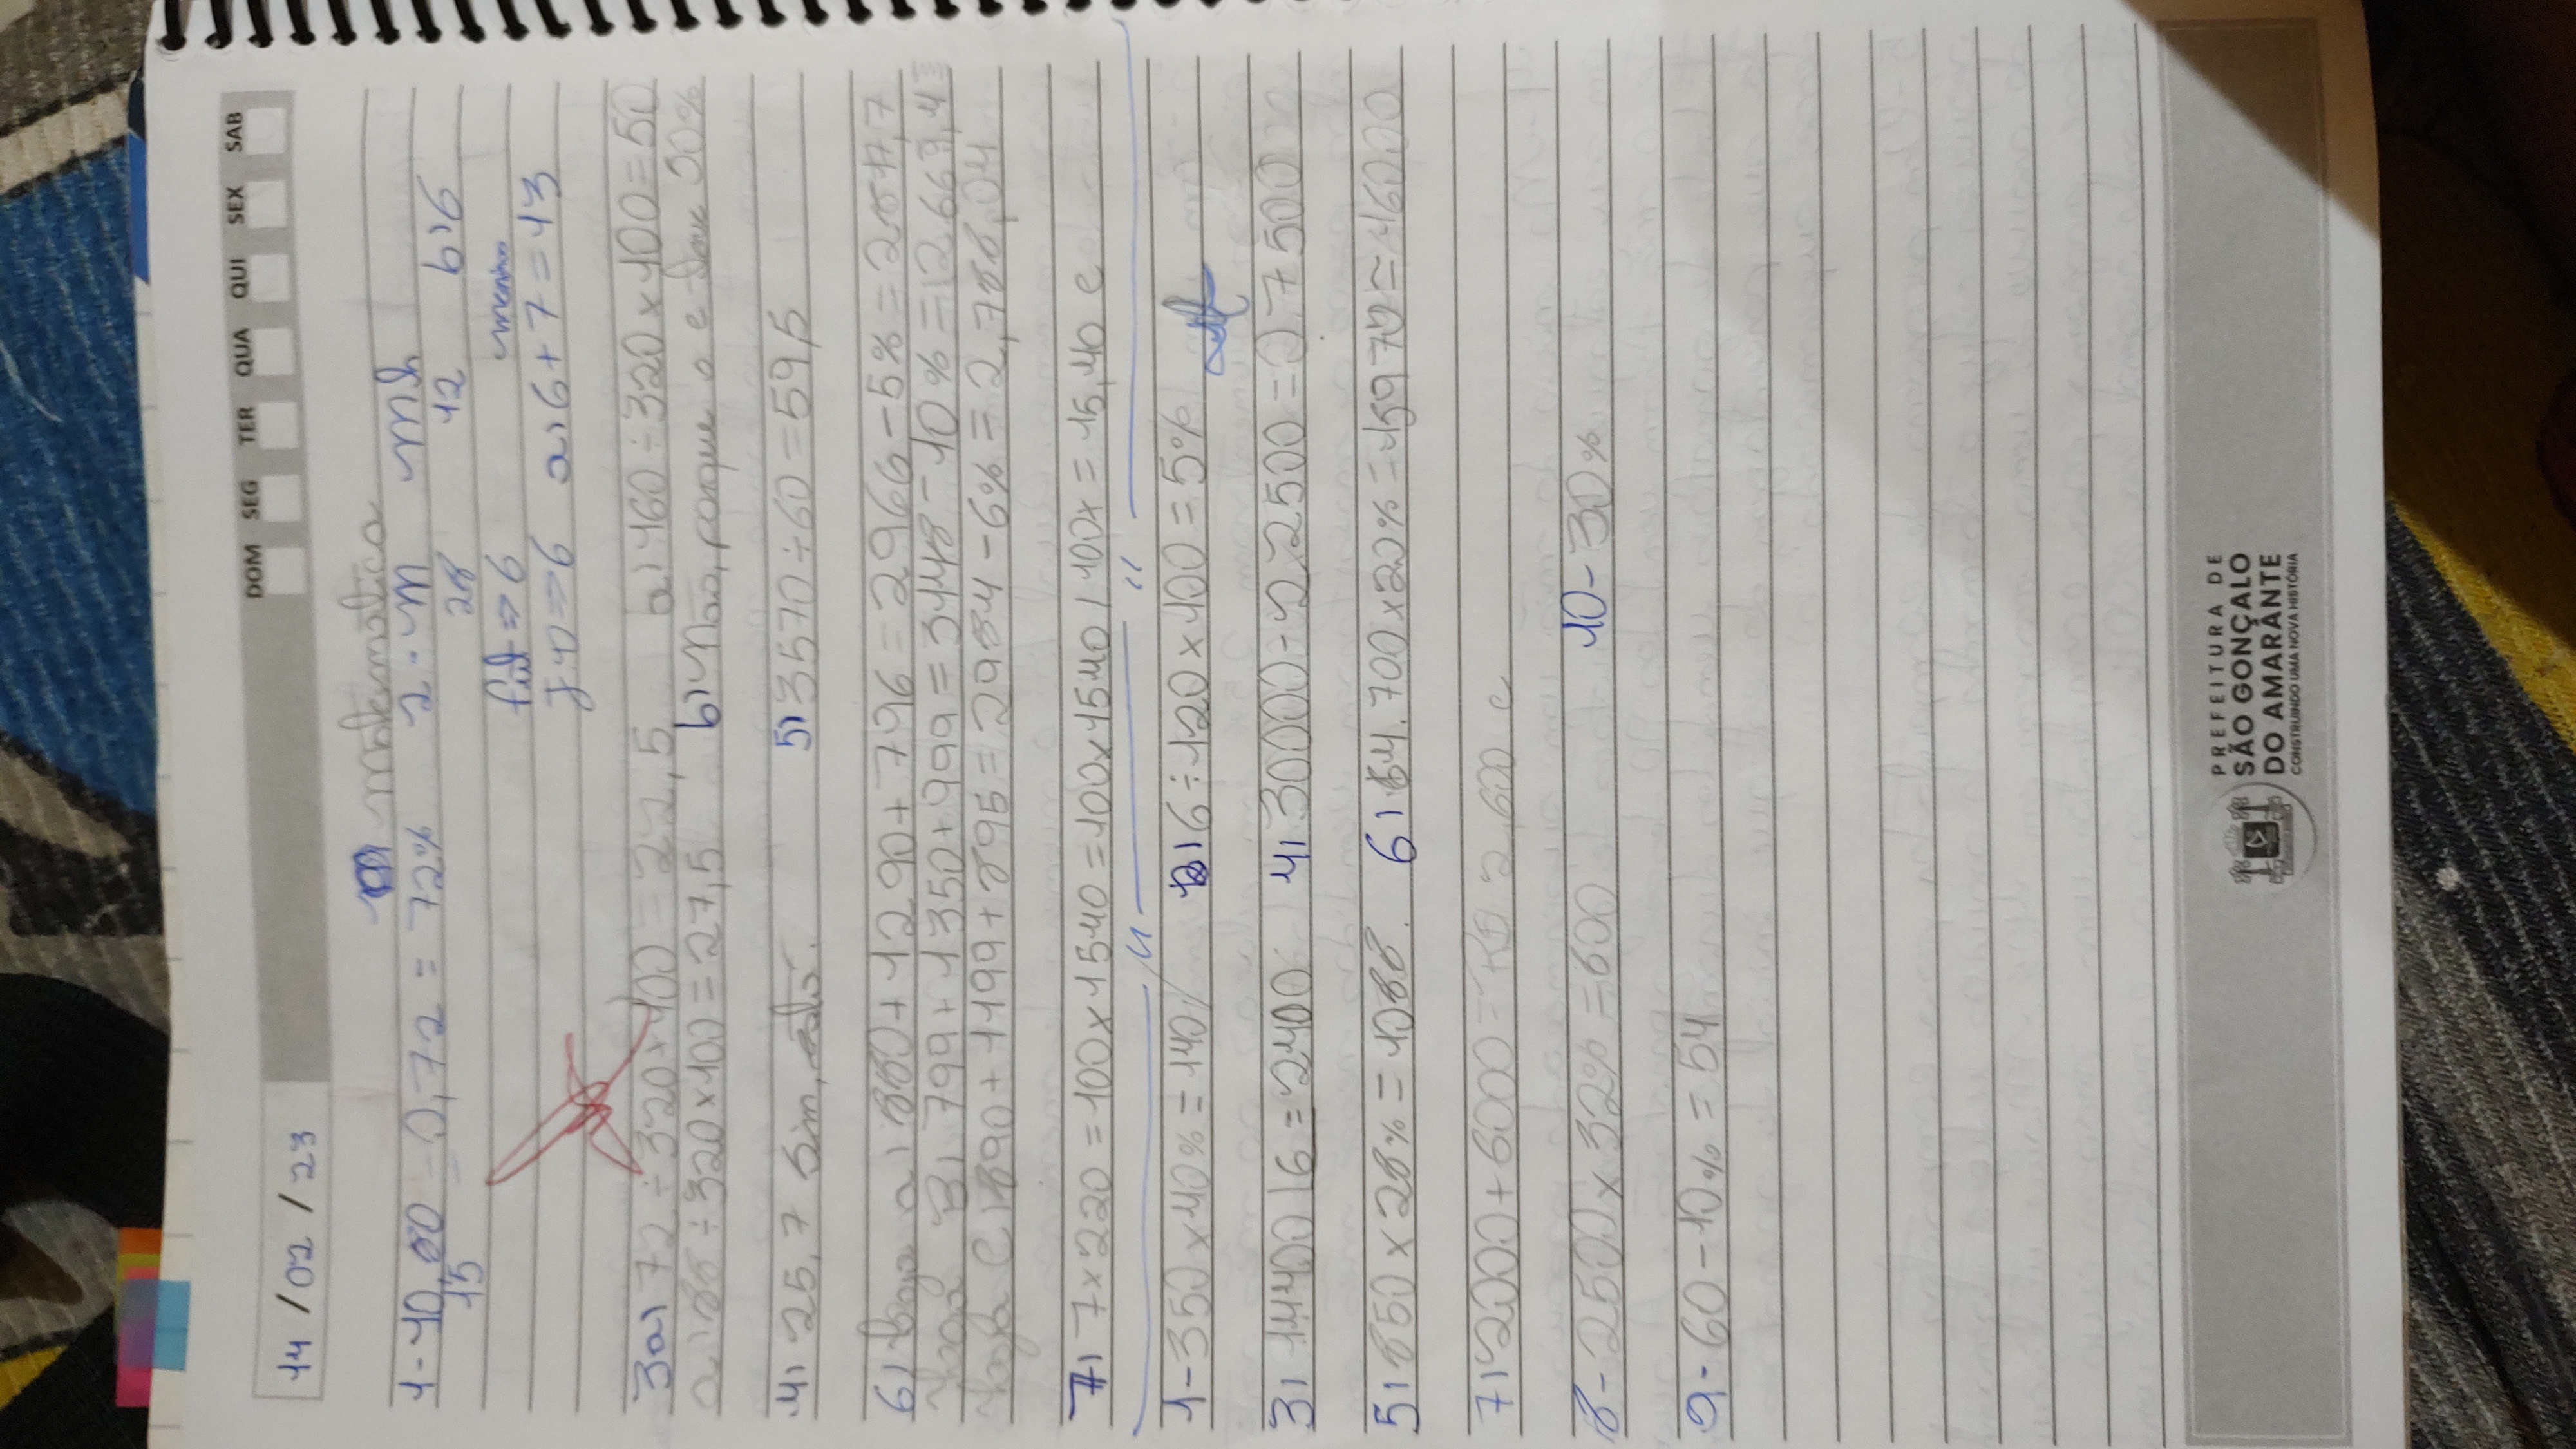 14 / 02 / 23
DOM SEG TER QUA QUI SEX SAB
matemática
1 - 10,80 - 0,72 = 72% 2 - m mh
15 28 12 b) 6
fut => 6 meninos
J 40 => 6 a) 6 + 7 = 13
3a) 72 ÷ 320 x 100 = 22,5 b) 160 ÷ 320 x 100 = 50
a) 88 ÷ 320 x 100 = 27,5 b) não, porque o e deu 30%
4) 25,7 sim,
5) 3570 ÷ 60 = 59,5
6) loja a) 880 + 1290 + 796 = 2966 - 5% = 2817,7
loja B) 799 + 1350 + 999 = 3148 - 10% = 2667,4
loja C) 890 + 1199 + 895 = 2984 - 6% = 2,788,04
7) 7 x 220 = 100 x 1540 = 100 x 1540 / 100x = 15,40 c
1 - 350 x 40% = 140/ 2) 6 ÷ 120 x 100 = 5%
3) 14400 | 6 = 2400 4) 30000 - 22500 = 07500
5) 850 x 28% = 1088. 6) 84.700 x 20% = 15970 = 16000
7) 2000 + 6000 = 2,600 c
8 - 2500 x 32% = 600 10 - 30%
9 - 60 - 10% = 54
PREFEITURA DE
SÃO GONÇALO
DO AMARANTE
CONSTRUINDO UMA NOVA HISTÓRIA